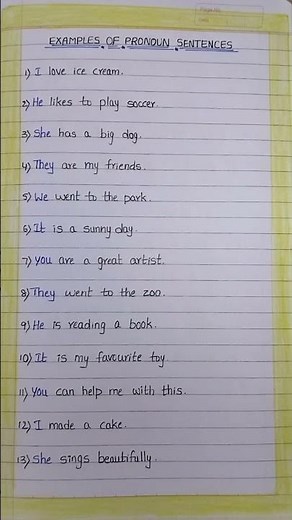 EXAMPLES OF PRONOUN SENTENCES
1) I love ice cream.
2) He likes to play soccer.
3) She has a big dog.
4) They are my friends.
5) We went to the park.
6) It is a sunny day.
7) You are a great artist.
8) They went to the zoo.
9) He is reading a book.
10) It is my favourite toy.
11) You can help me with this.
12) I made a cake.
13) She sings beautifully.